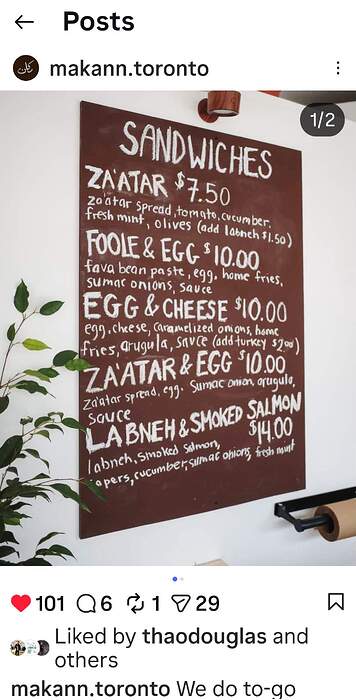 Posts
makann.toronto
1/2
SANDWICHES
ZA'ATAR $7.50
za'atar spread, tomato, cucumber,
fresh mint, olives (add labneh $1.50)
FOOLE & EGG $10.00
fava bean paste, egg, home fries,
sumac onions, sauce
EGG & CHEESE $10.00
egg, cheese, caramelized onions, home
fries, arugula, sauce (add turkey $2.00)
ZA'ATAR & EGG $10.00
za'atar spread, egg, sumac onion, arugula,
sauce
LABNEH & SMOKED SALMON
$14.00
labneh, smoked salmon,
capers, cucumber, sumac onions, fresh mint
101 6 1 29
Liked by thaodouglas and
others
makann.toronto We do to-go